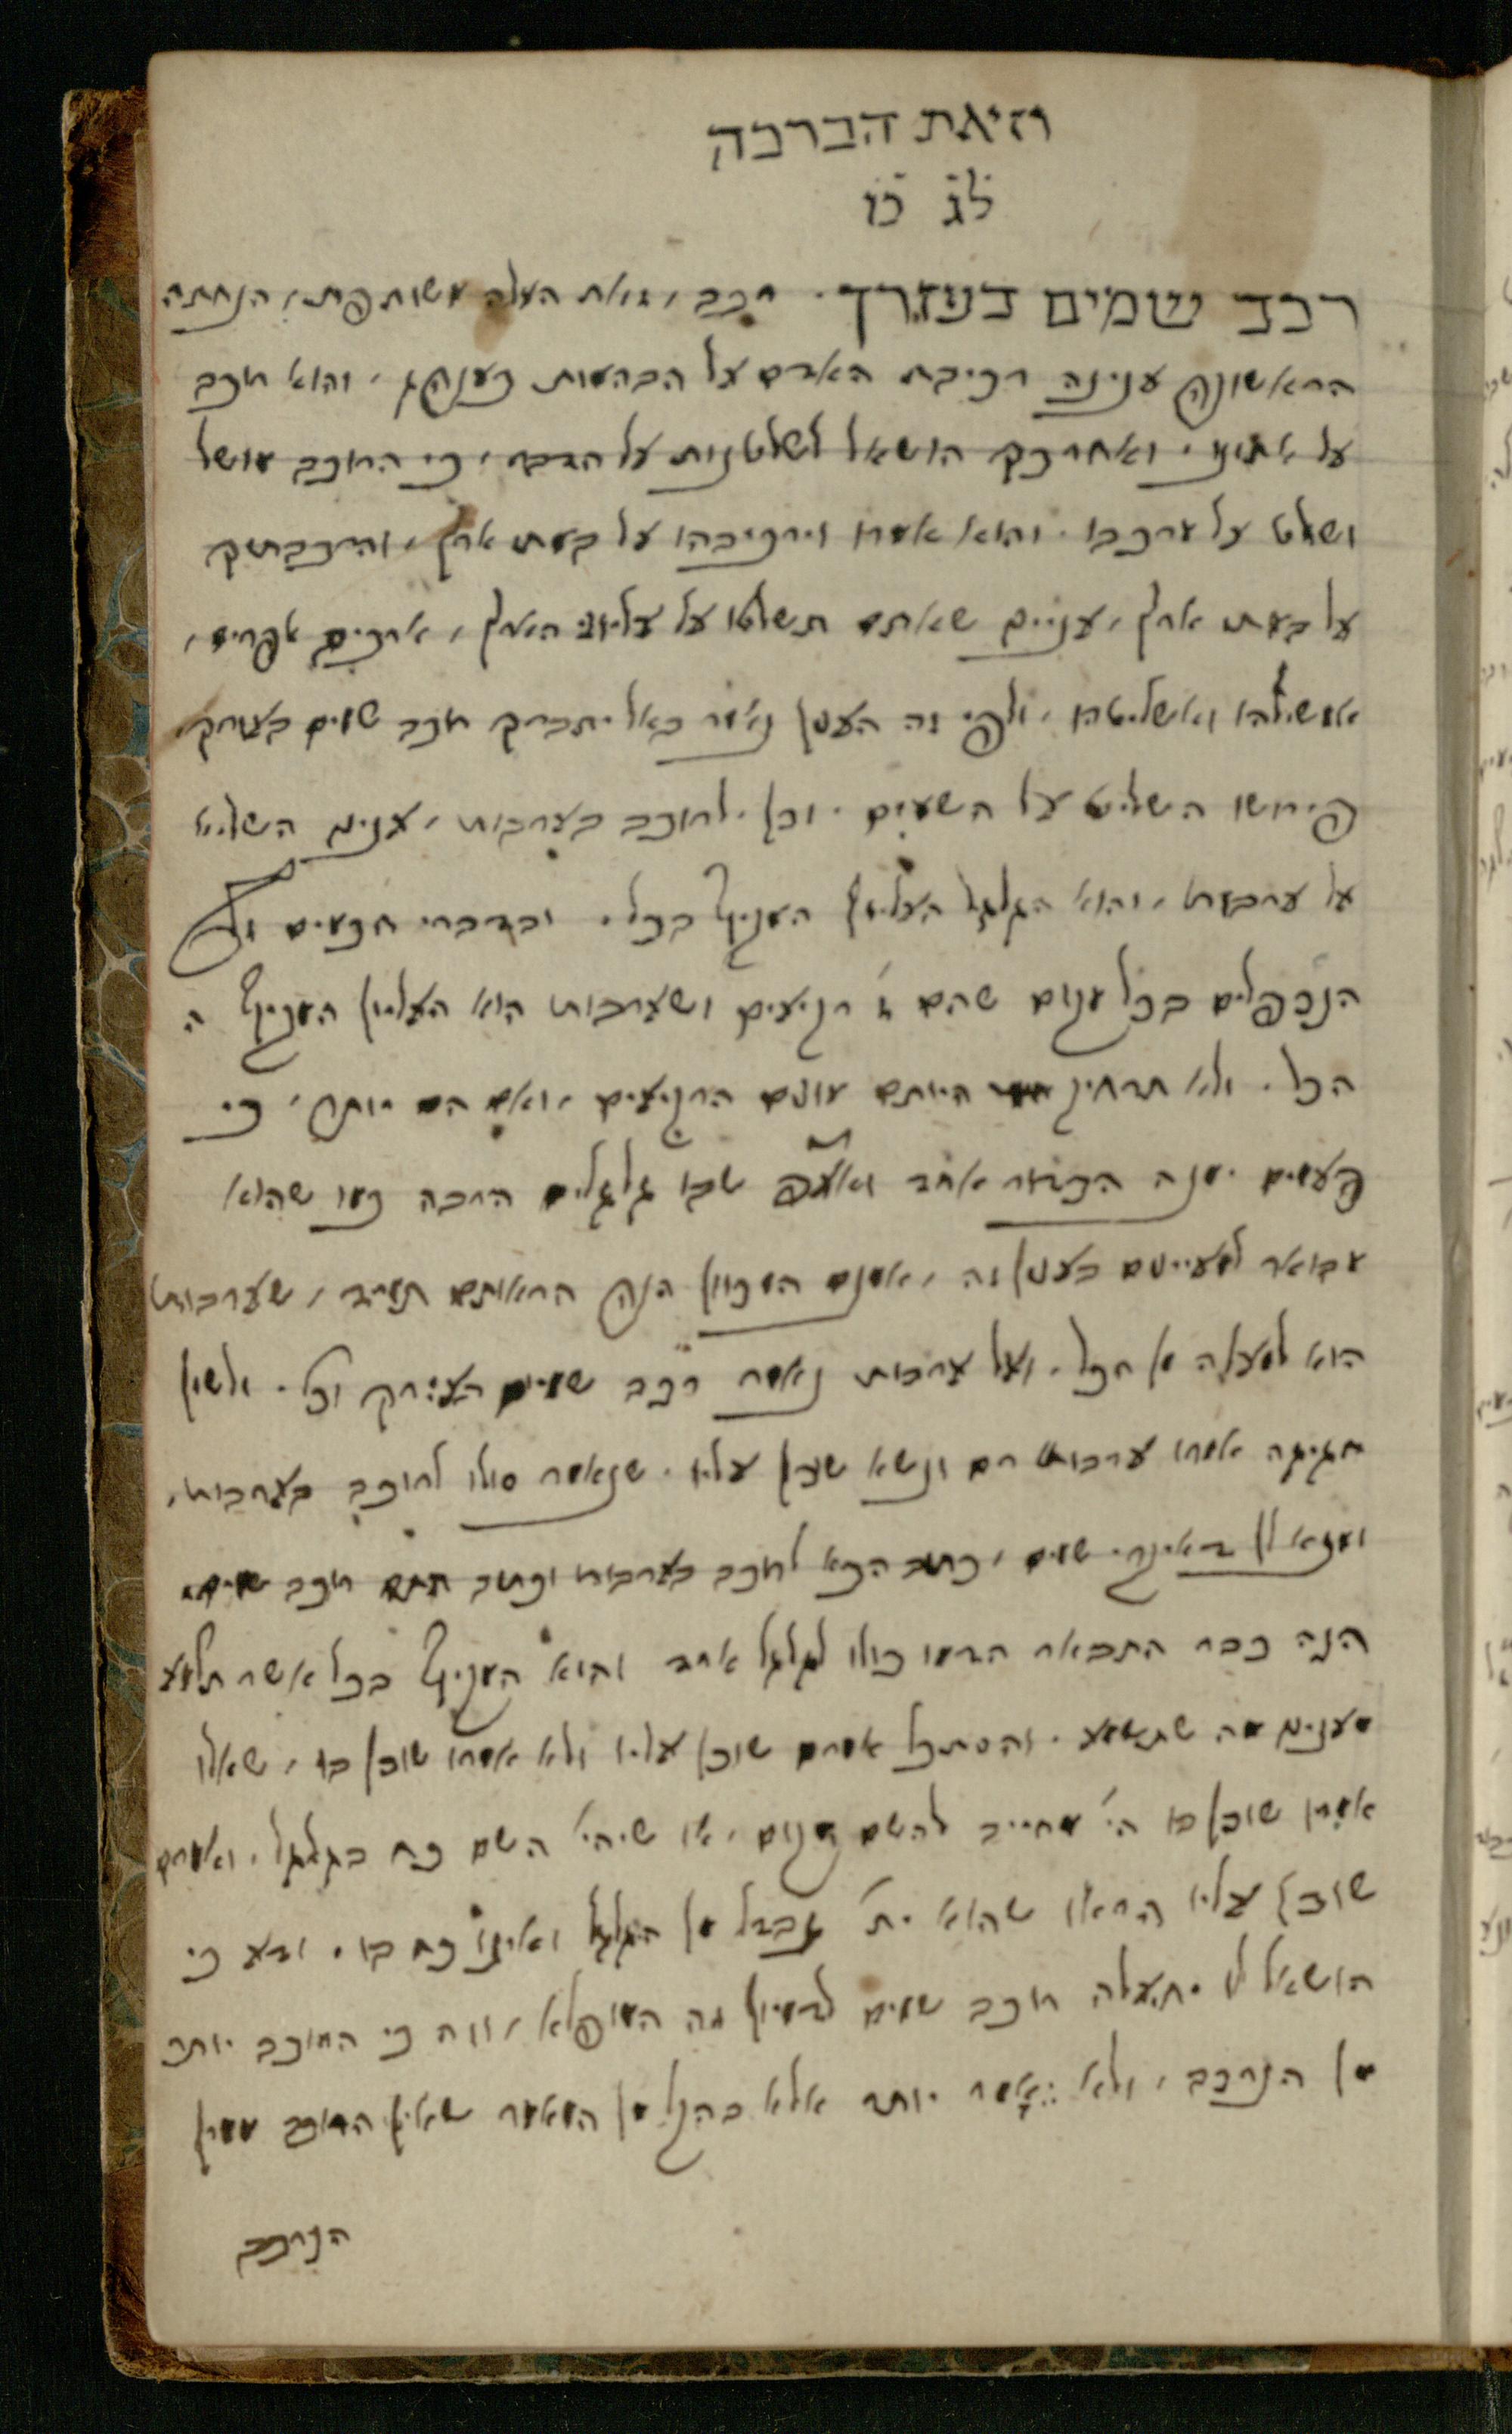 וזאת הברכה
לג כו
רכב שמים בעזרך. רכב, זאת המלה משותפת, הנחתה
הראשונה ענינה רכיבת האדם על הבהמות כמנהג, והוא רוכב
על אתונו, ואחר כך הושאל לשלטנות על הדבר, כי הרוכב מושל
ושולט על מרכבו. והוא אמרו וירכיבהו על במתי ארץ, והרכבתיך
על במתי ארץ, עניינם שאתם תשלטו על עליוני הארץ, ארכיב אפרים,
אמשילהו ואשליטהו, ולפי זה הענין נאמר באל יתברך רוכב שמים בעזרך,
פירושו השליט על השמים. וכן לרוכב בערבות, ענינו השליט
על ערבות, והוא הגלגל העליון המקיף בכל. ובדברי חכמים ז״ל
הנכפלים בכל מקום שהם ז׳ רקיעים ושערבות הוא העליון המקיף ה
הכל. ולא תרחיק היותם מונים הרקיעים, ואם הם יותר, כי
פעמים ימנה הכדור אחד ואע״פ שבו גלגלים הרבה כמו שהוא
מבואר למעיינים בענין זה, אמנם המכוון הנה הראותם תמיד, שערבות
הוא למעלה מן הכל. ועל ערבות נאמר רכב שמים בעזרך וכו׳. ולשון
חגיגה אמרו ערבות רם ונשא שוכן עליו. שנאמר סולו לרוכב בערבות,
ומנא לן דאיקרי שמים, כתיב הכא לרוכב בערבות וכתיב התם רוכב שמים.
הנה כבר התבאר הרמז כולו לגלגל אחד והוא המקיף בכל אשר תשמע
מענינו מה שתשמע. והסתכל אמרם שוכן עליו ולא אמרו שוכן בו, שאלו
אמרו שוכן בו הי׳ מחייב להשם מקום, או שיהי׳ השם כח בגלגל. ואמרם
שוכן עליו הראו שהוא ית׳ נבדל מן הגלגל ואינו כח בו. ודע כי
הושאל לו יתעלה רוכב שמים לדמיון זה המופלא, וזה כי הרוכב יותר
מן הנרכב, ולא יאמר יותר אלא בהקל מן המאמר שאין הרוכב ממין
הנרכב